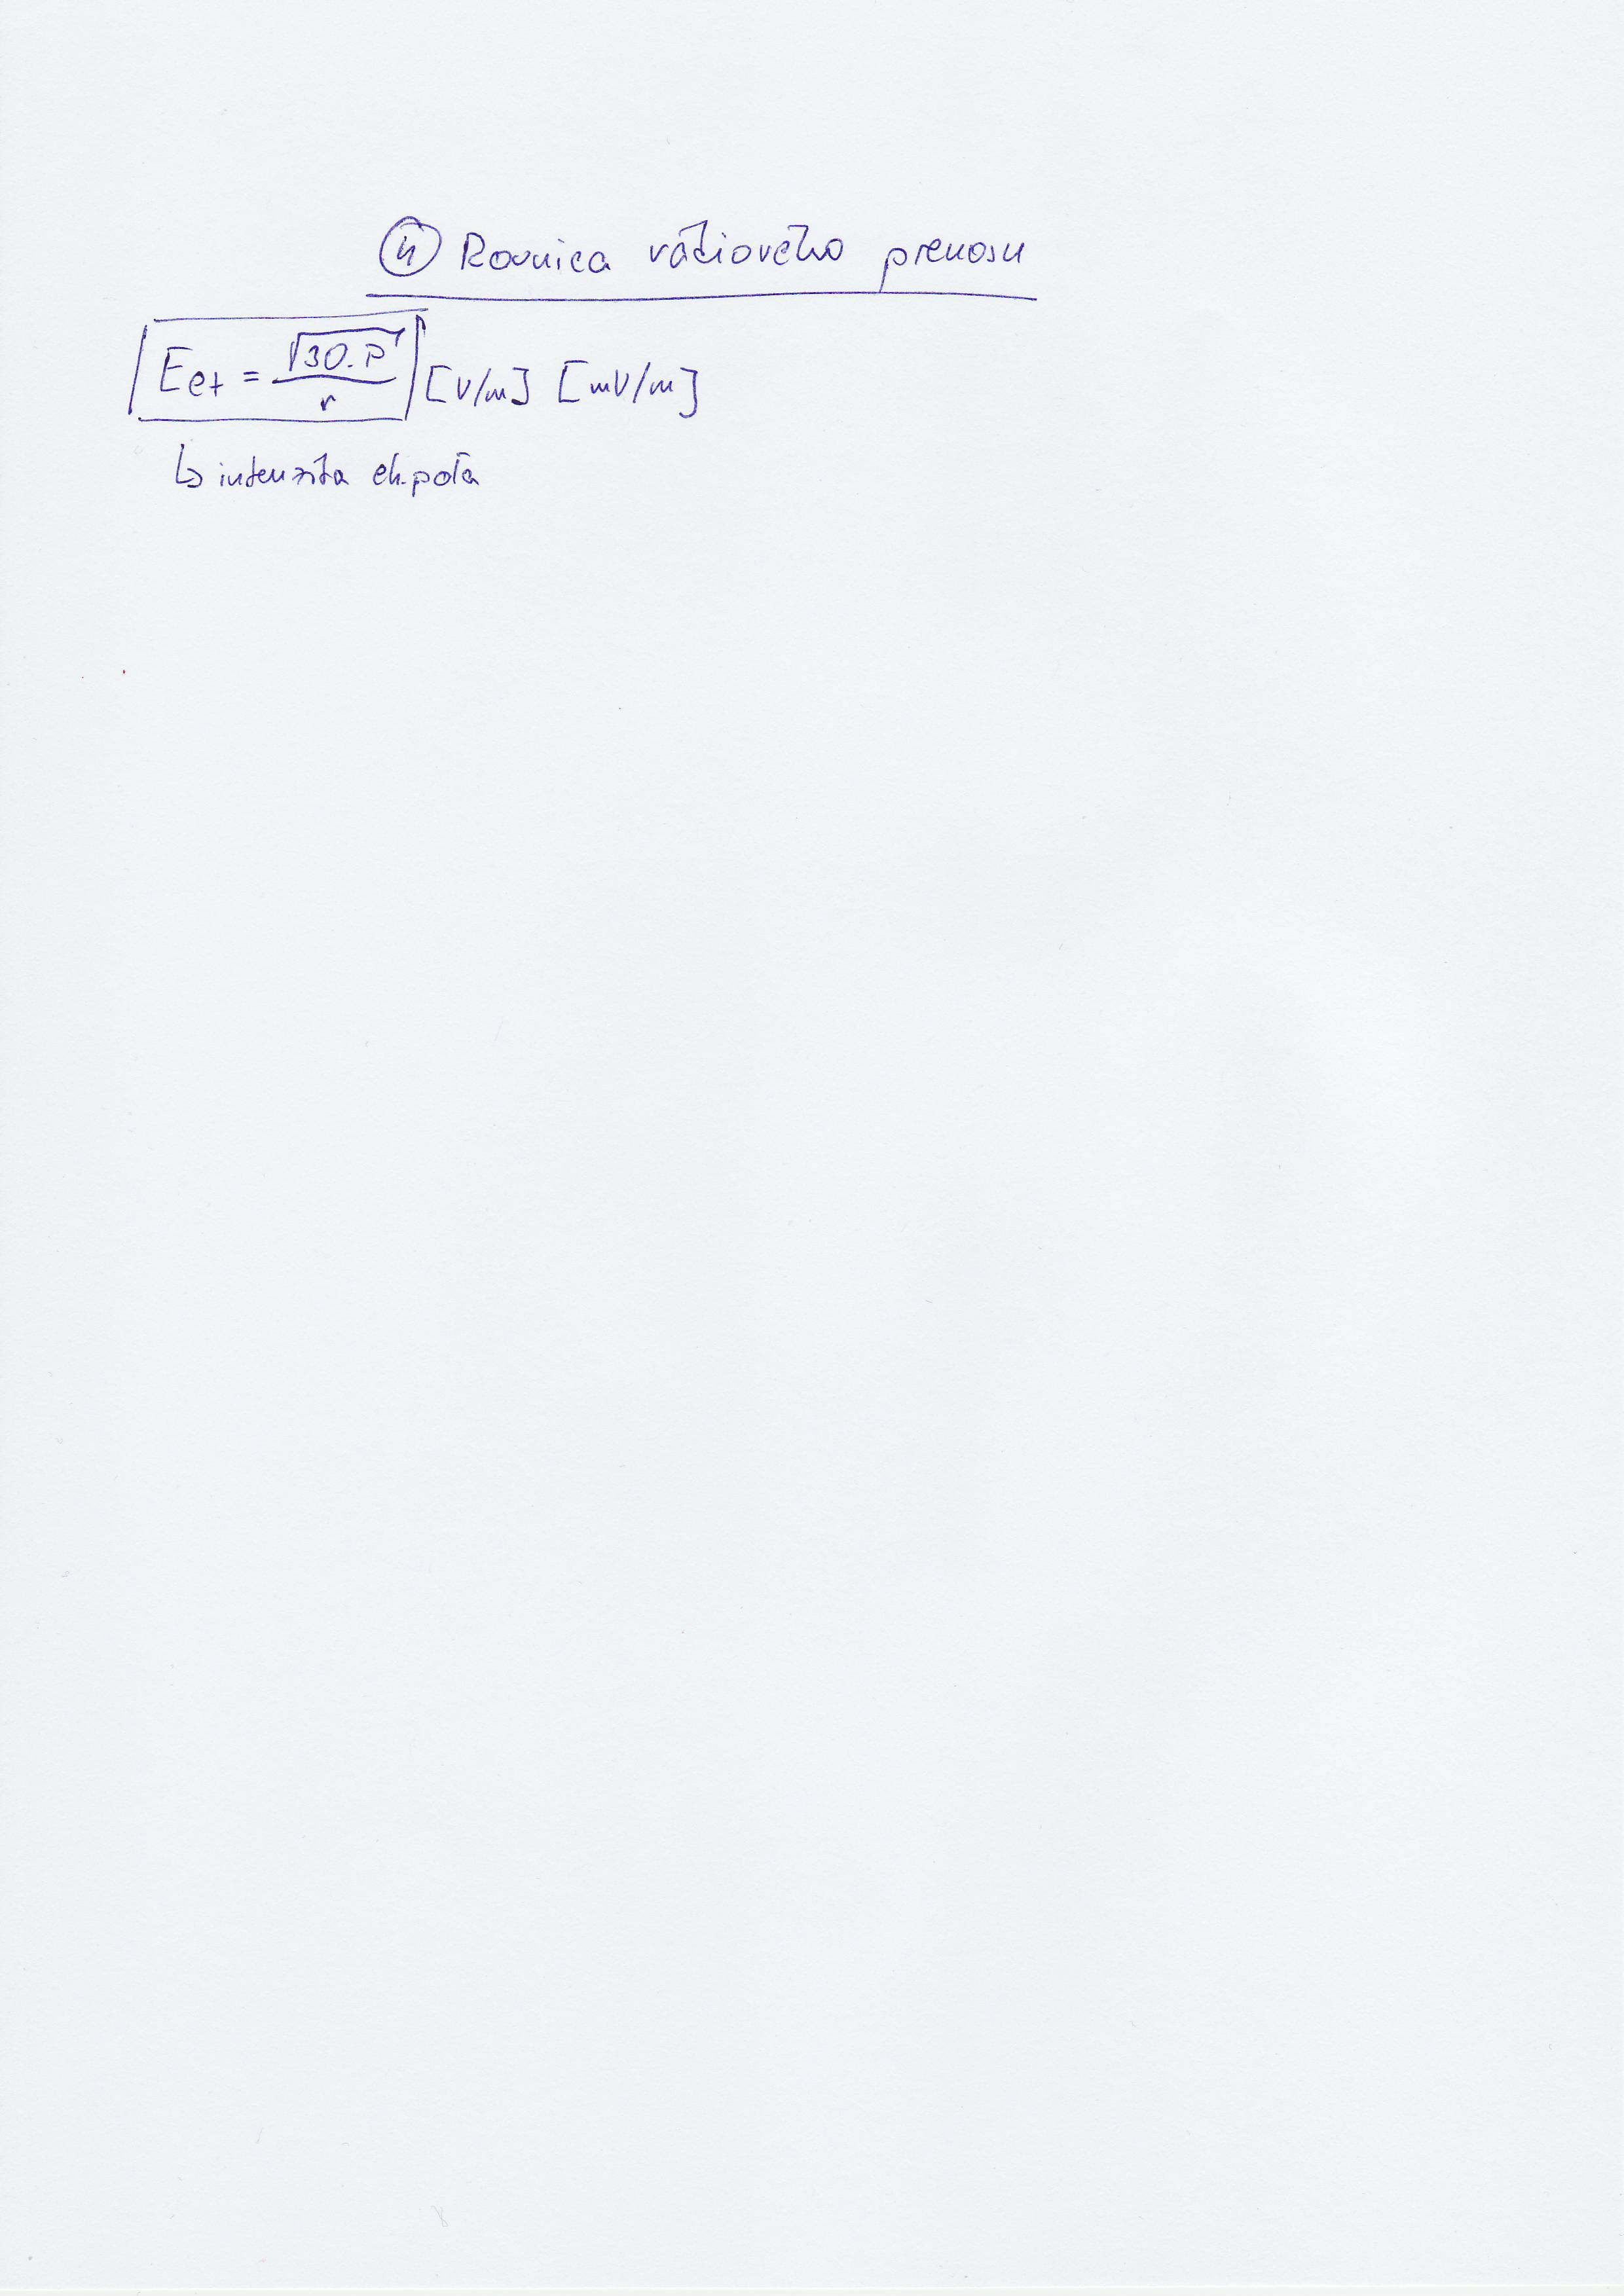 ④ Rovnica rádiového prenosu
Eef = √30.P / r [V/m] [mV/m]
↳ intenzita el. poľa